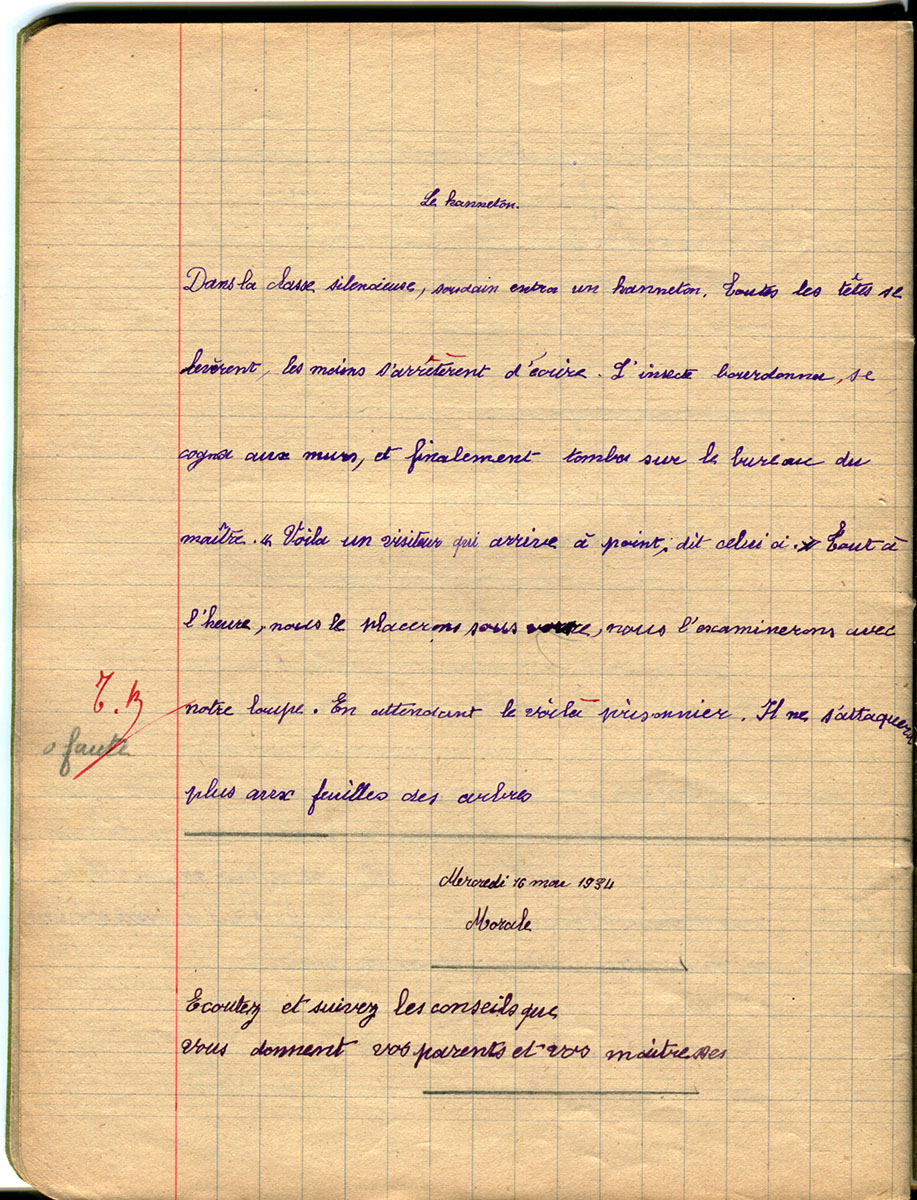 Le hanneton.
Dans la classe silencieuse, soudain entra un hanneton. Toutes les têtes se
levèrent, les mains s'arrêtèrent d'écrire. L'insecte bourdonna, se
cogna aux murs, et finalement tomba sur le bureau du
maître. « Voila un visiteur qui arrive à point, dit celui ci. » Tout à
l'heure, nous le placerons sous verre, nous l'examinerons avec
T.B
notre loupe. En attendant le voilà prisonnier. Il ne s'attaquera
0 faute
plus aux feuilles des arbres
Mercredi 16 mai 1934
Morale
Ecoutez et suivez les conseils que
vous donnent vos parents et vos maitresses